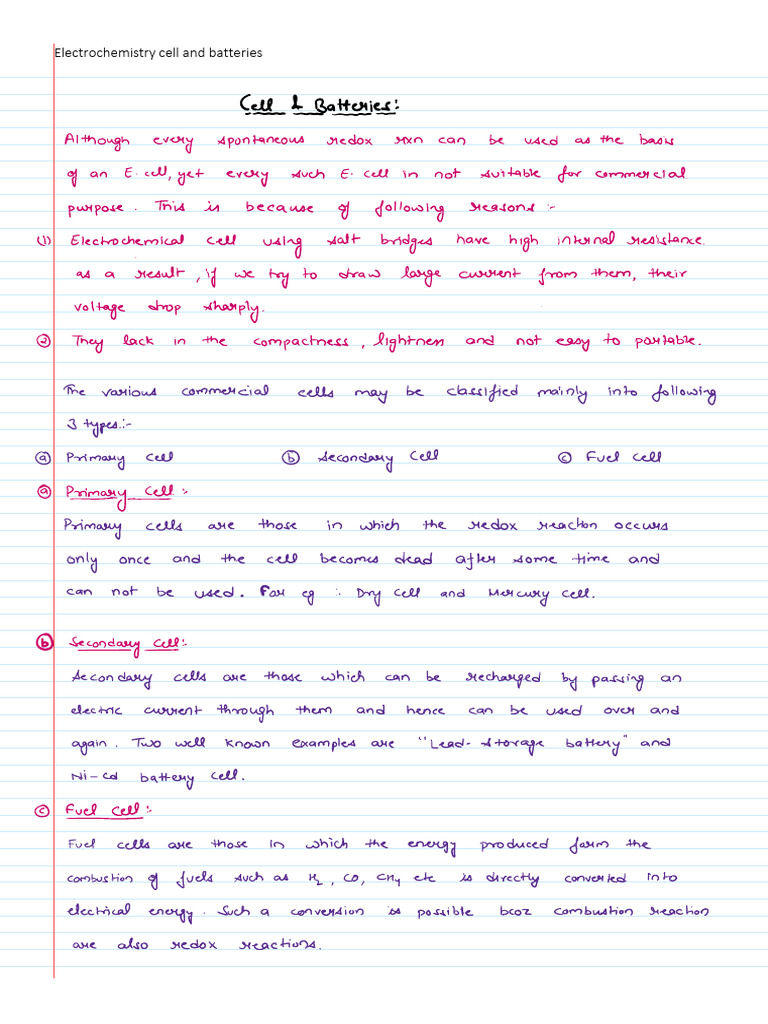 Electrochemistry cell and batteries
Cell & Batteries:
Although every spontaneous redox rxn can be used as the basis
of an E. cell, yet every such E. cell in not suitable for commercial
purpose. This is because of following reasons :-
(1) Electrochemical cell using salt bridges have high internal resistance.
as a result, if we try to draw large current from them, their
voltage drop sharply.
(2) They lack in the compactness, lightness and not easy to portable.
The various commercial cells may be classified mainly into following
3 types:-
(a) Primary cell (b) Secondary Cell (c) Fuel cell
(a) Primary Cell :-
Primary cells are those in which the redox reaction occurs
only once and the cell becomes dead after some time and
can not be used. For eg :- Dry cell and Mercury cell.
(b) Secondary cell:-
Secondary cells are those which can be recharged by passing an
electric current through them and hence can be used over and
again. Two well known examples are "Lead-storage battery" and
Ni-Cd battery cell.
(c) Fuel cell:-
Fuel cells are those in which the energy produced form the
combustion of fuels such as H₂, CO, CH₄ etc is directly converted into
electrical energy. Such a conversion is possible bcoz combustion reaction
are also redox reactions.